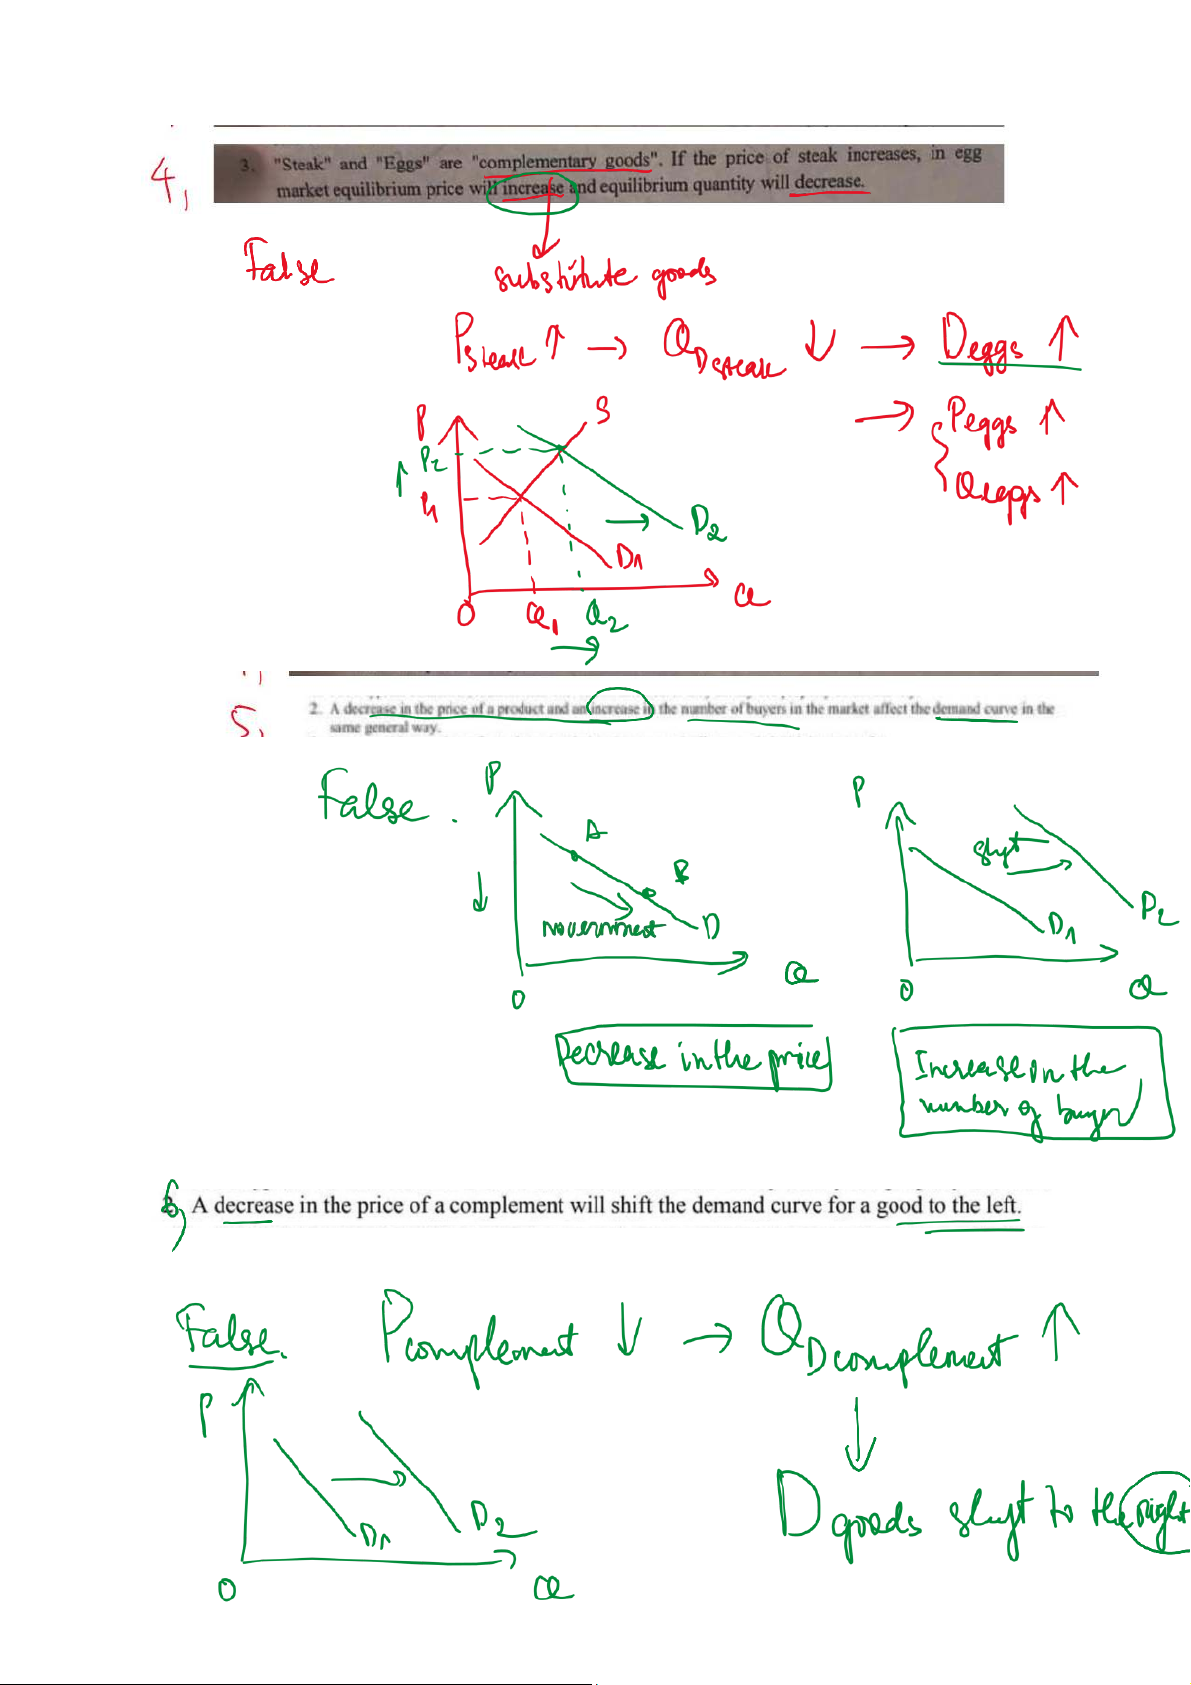 4,
3. "Steak" and "Eggs" are "complementary goods". If the price of steak increases, in egg
market equilibrium price will increase and equilibrium quantity will decrease.
False
substitute goods
Psteak ↑ → QDsteak ↓ → Deggs ↑
→ Peggs ↑
Qeggs ↑
P
S
P2
P1
D2
D1
O
Q1
Q2
Q
5,
2. A decrease in the price of a product and an increase in the number of buyers in the market affect the demand curve in the
same general way.
False.
P
A
B
movement
D
Q
O
P
shift
D1
D2
Q
O
Decrease in the price
Increase in the
number of buyer
6,
A decrease in the price of a complement will shift the demand curve for a good to the left.
False.
Pcomplement ↓ → QDcomplement ↑
P
D1
D2
O
Q
Dgoods shift to the right